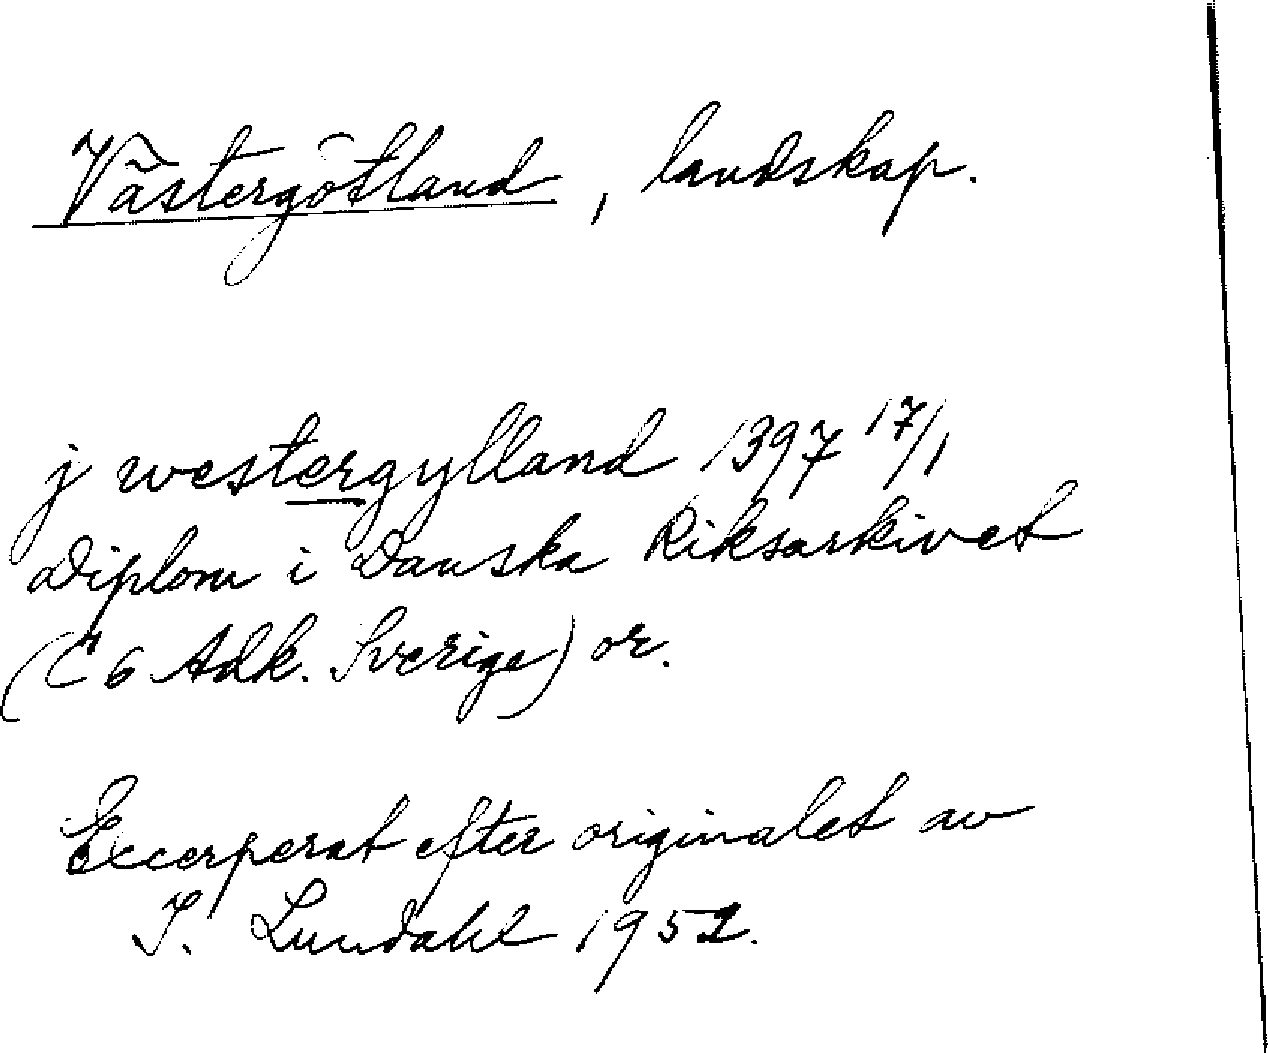 Västergötland, landskap.
j westergylland 1397 17/1
Diplom i Danska Riksarkivet
(C 6 Adk. Sverige) or.
Excerperat efter originalet av
I. Lundahl 1952.